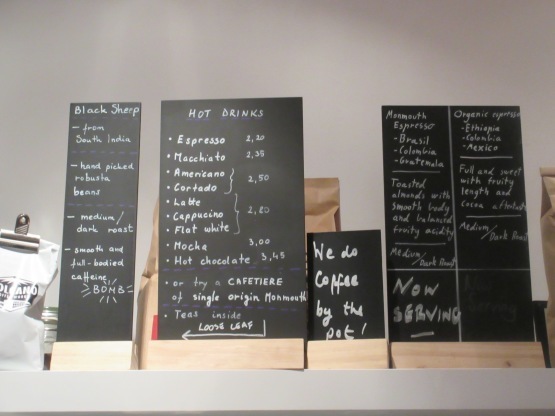 Black Sheep
- from
South India
- hand picked
robusta
beans
- medium/
dark roast
- smooth and
full-bodied
caffeine
BOMB
HOT DRINKS
• Espresso 2,20
• Macchiato 2,35
• Americano
• Cortado 2,50
• Latte
• Cappucino 2,80
• Flat white
• Mocha 3,00
• Hot chocolate 3,45
• or try a CAFETIERE
of single origin Monmouth
• Teas inside
LOOSE LEAF
We do
Coffee
by the
pot!
Monmouth
Espresso
- Brasil
- Colombia
- Guatemala
Toasted
almonds with
smooth body
and balanced
fruity acidity
Medium/
Dark Roast
NOW
SERVING
Organic espresso
- Ethiopia
- Colombia
- Mexico
Full and sweet
with fruity
length and
Cocoa aftertaste
Medium/
Dark Roast